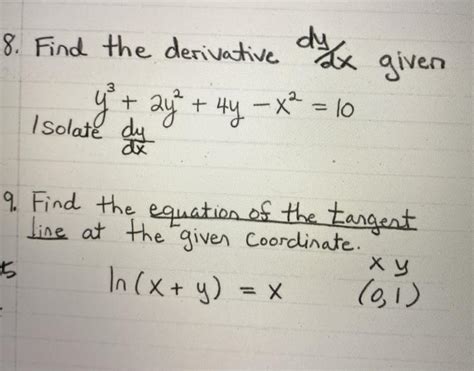 8. Find the derivative dy/dx given
y³ + 2y² + 4y − x² = 10
Isolate dy/dx
9. Find the equation of the tangent
line at the given coordinate.
x y
ln(x + y) = x (0,1)